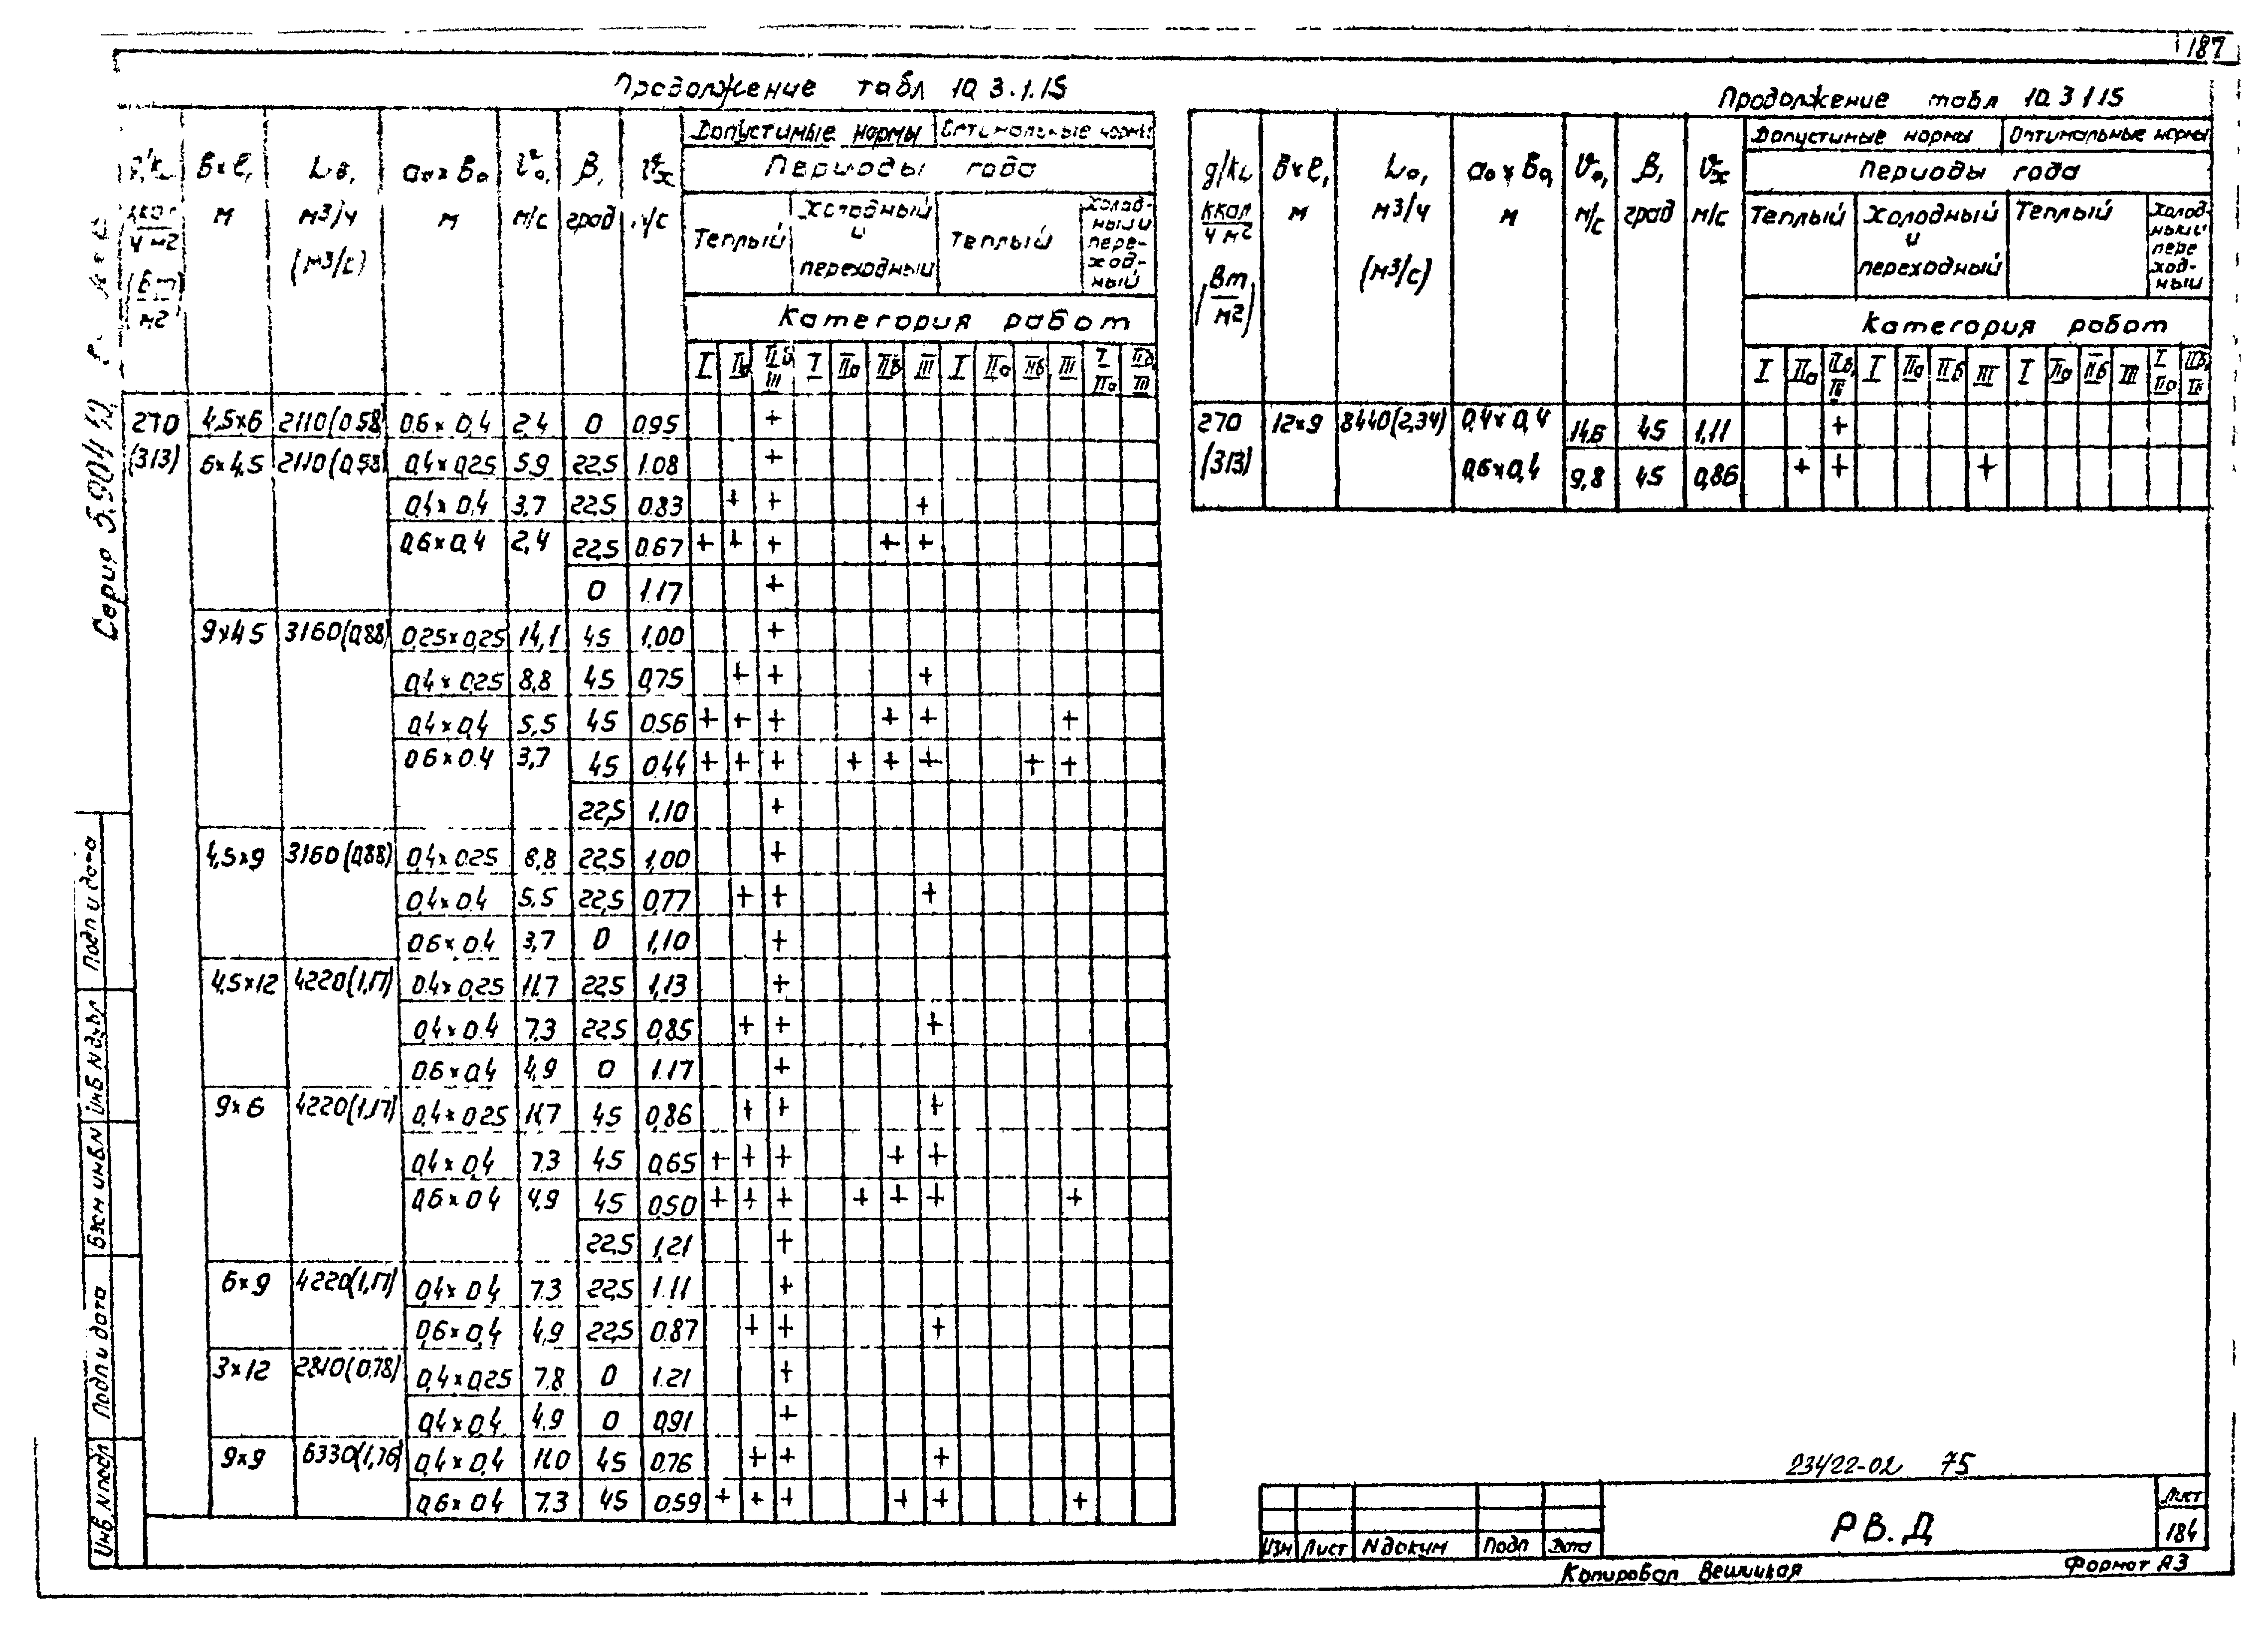 187
Продолжение табл 10.3.1.15
в×l, м
L₀, м3/ч (м3/с)
a₀×в₀ м
v₀, м/с
β, град
vx м/с
Допустимые нормы Оптимальные нормы
Периоды года
Теплый Холодный и переходный Теплый Холодный и переходный
Категория работ
I IIа IIб, III I IIа IIб III I IIа IIб III I IIа IIб, III
270 4,5×6 2110(0.58) 0.6×0,4 2,4 0 0.95 +
(313) 6×4,5 2110(0,58) 0,4×0,25 5,9 22,5 1.08 +
0,4×0,4 3,7 22,5 0.83 + + +
0,6×0,4 2,4 22,5 0.67 + + + + +
0 1.17 +
9×4.5 3160(0,88) 0,25×0,25 14,1 45 1,00 +
0,4×0,25 8,8 45 0,75 + + +
0,4×0,4 5,5 45 0.56 + + + + + +
0.6×0.4 3,7 45 0.44 + + + + + + + +
22,5 1.10 +
4,5×9 3160(0,88) 0,4×0.25 8,8 22,5 1,00 +
0,4×0.4 5,5 22,5 0,77 + + +
0,6×0.4 3,7 0 1,10 +
4,5×12 4220(1,17) 0.4×0,25 11.7 22,5 1,13 +
0,4×0.4 7,3 22,5 0,85 + + +
0.6×0,4 4,9 0 1.17 +
9×6 4220(1,17) 0,4×0.25 11,7 45 0,86 + + +
0,4×0,4 7.3 45 0,65 + + + + +
0,6×0.4 4,9 45 0.50 + + + + + + +
22,5 1,21 +
6×9 4220(1,17) 0,4×0.4 7.3 22,5 1.11 +
0,6×0,4 4,9 22,5 0.87 + + +
3×12 2810(0,78) 0,4×0,25 7,8 0 1.21 +
0,4×0,4 4.9 0 0,91 +
9×9 6330(1,76) 0,4×0,4 11.0 45 0.76 + + +
0,6×0.4 7.3 45 0.59 + + + + + +
Продолжение табл 10.3.1.15
g/k, ккал/ч м2 (Вт/м2)
в×l, м
L₀, м3/ч (м3/с)
a₀×в₀, м
v₀, м/с
β, град
vx м/с
Допустимые нормы Оптимальные нормы
Периоды года
Теплый Холодный и переходный Теплый Холодный переходный
Категория работ
I IIа IIб, III I IIа IIб III I IIа IIб III I IIа IIб, III
270 12×9 8440(2,34) 0,4×0,4 14,6 45 1,11 +
(313) 0,6×0,4 9,8 45 0,86 + + +
Серия 5.904
Подп и дата
Инв N дубл
Взам инв N
Подп и дата
Инв. N подл
23422-02 75
РВ.Д
Лист
184
Изм Лист N докум Подп Дата
Копировал
Формат А3